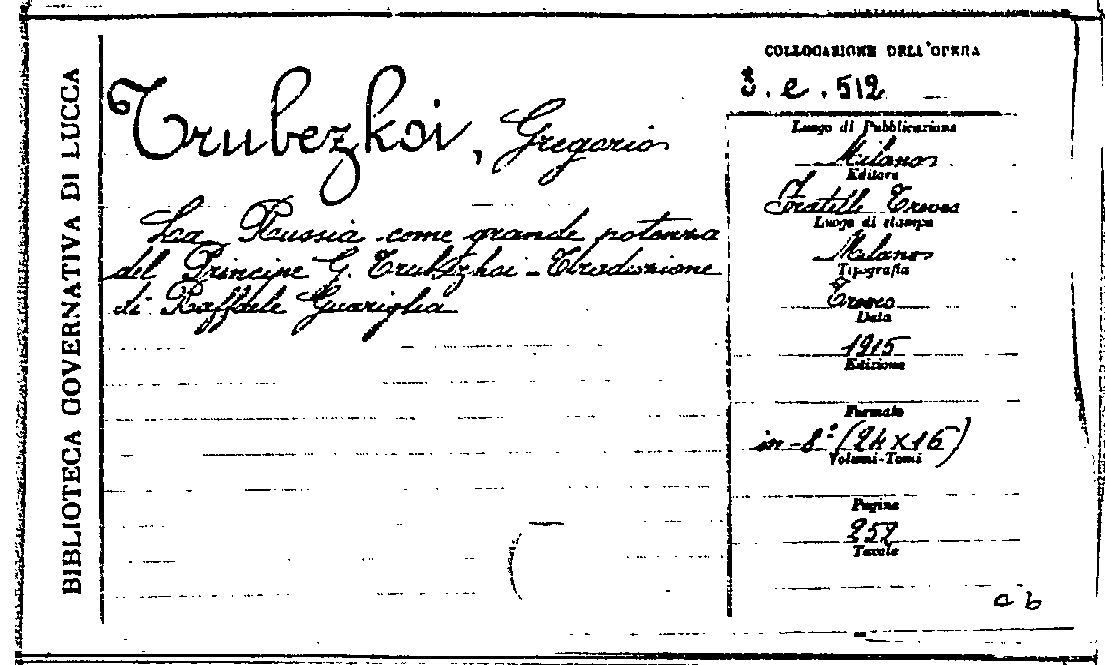 BIBLIOTECA GOVERNATIVA DI LUCCA
Trubezkoi, Gregorio
La Russia come grande potenza
del Principe G. Trubezkoi - Traduzione
di Raffaele Guariglia
COLLOCAZIONE DELL'OPERA
3. e. 512
Luogo di Pubblicazione
Milano
Editore
Fratelli Treves
Luogo di stampa
Milano
Tipografia
Treves
Data
1915
Edizione
Formato
in-8° (24x16)
Volumi-Tomi
Pagine
252
Tavole
a b